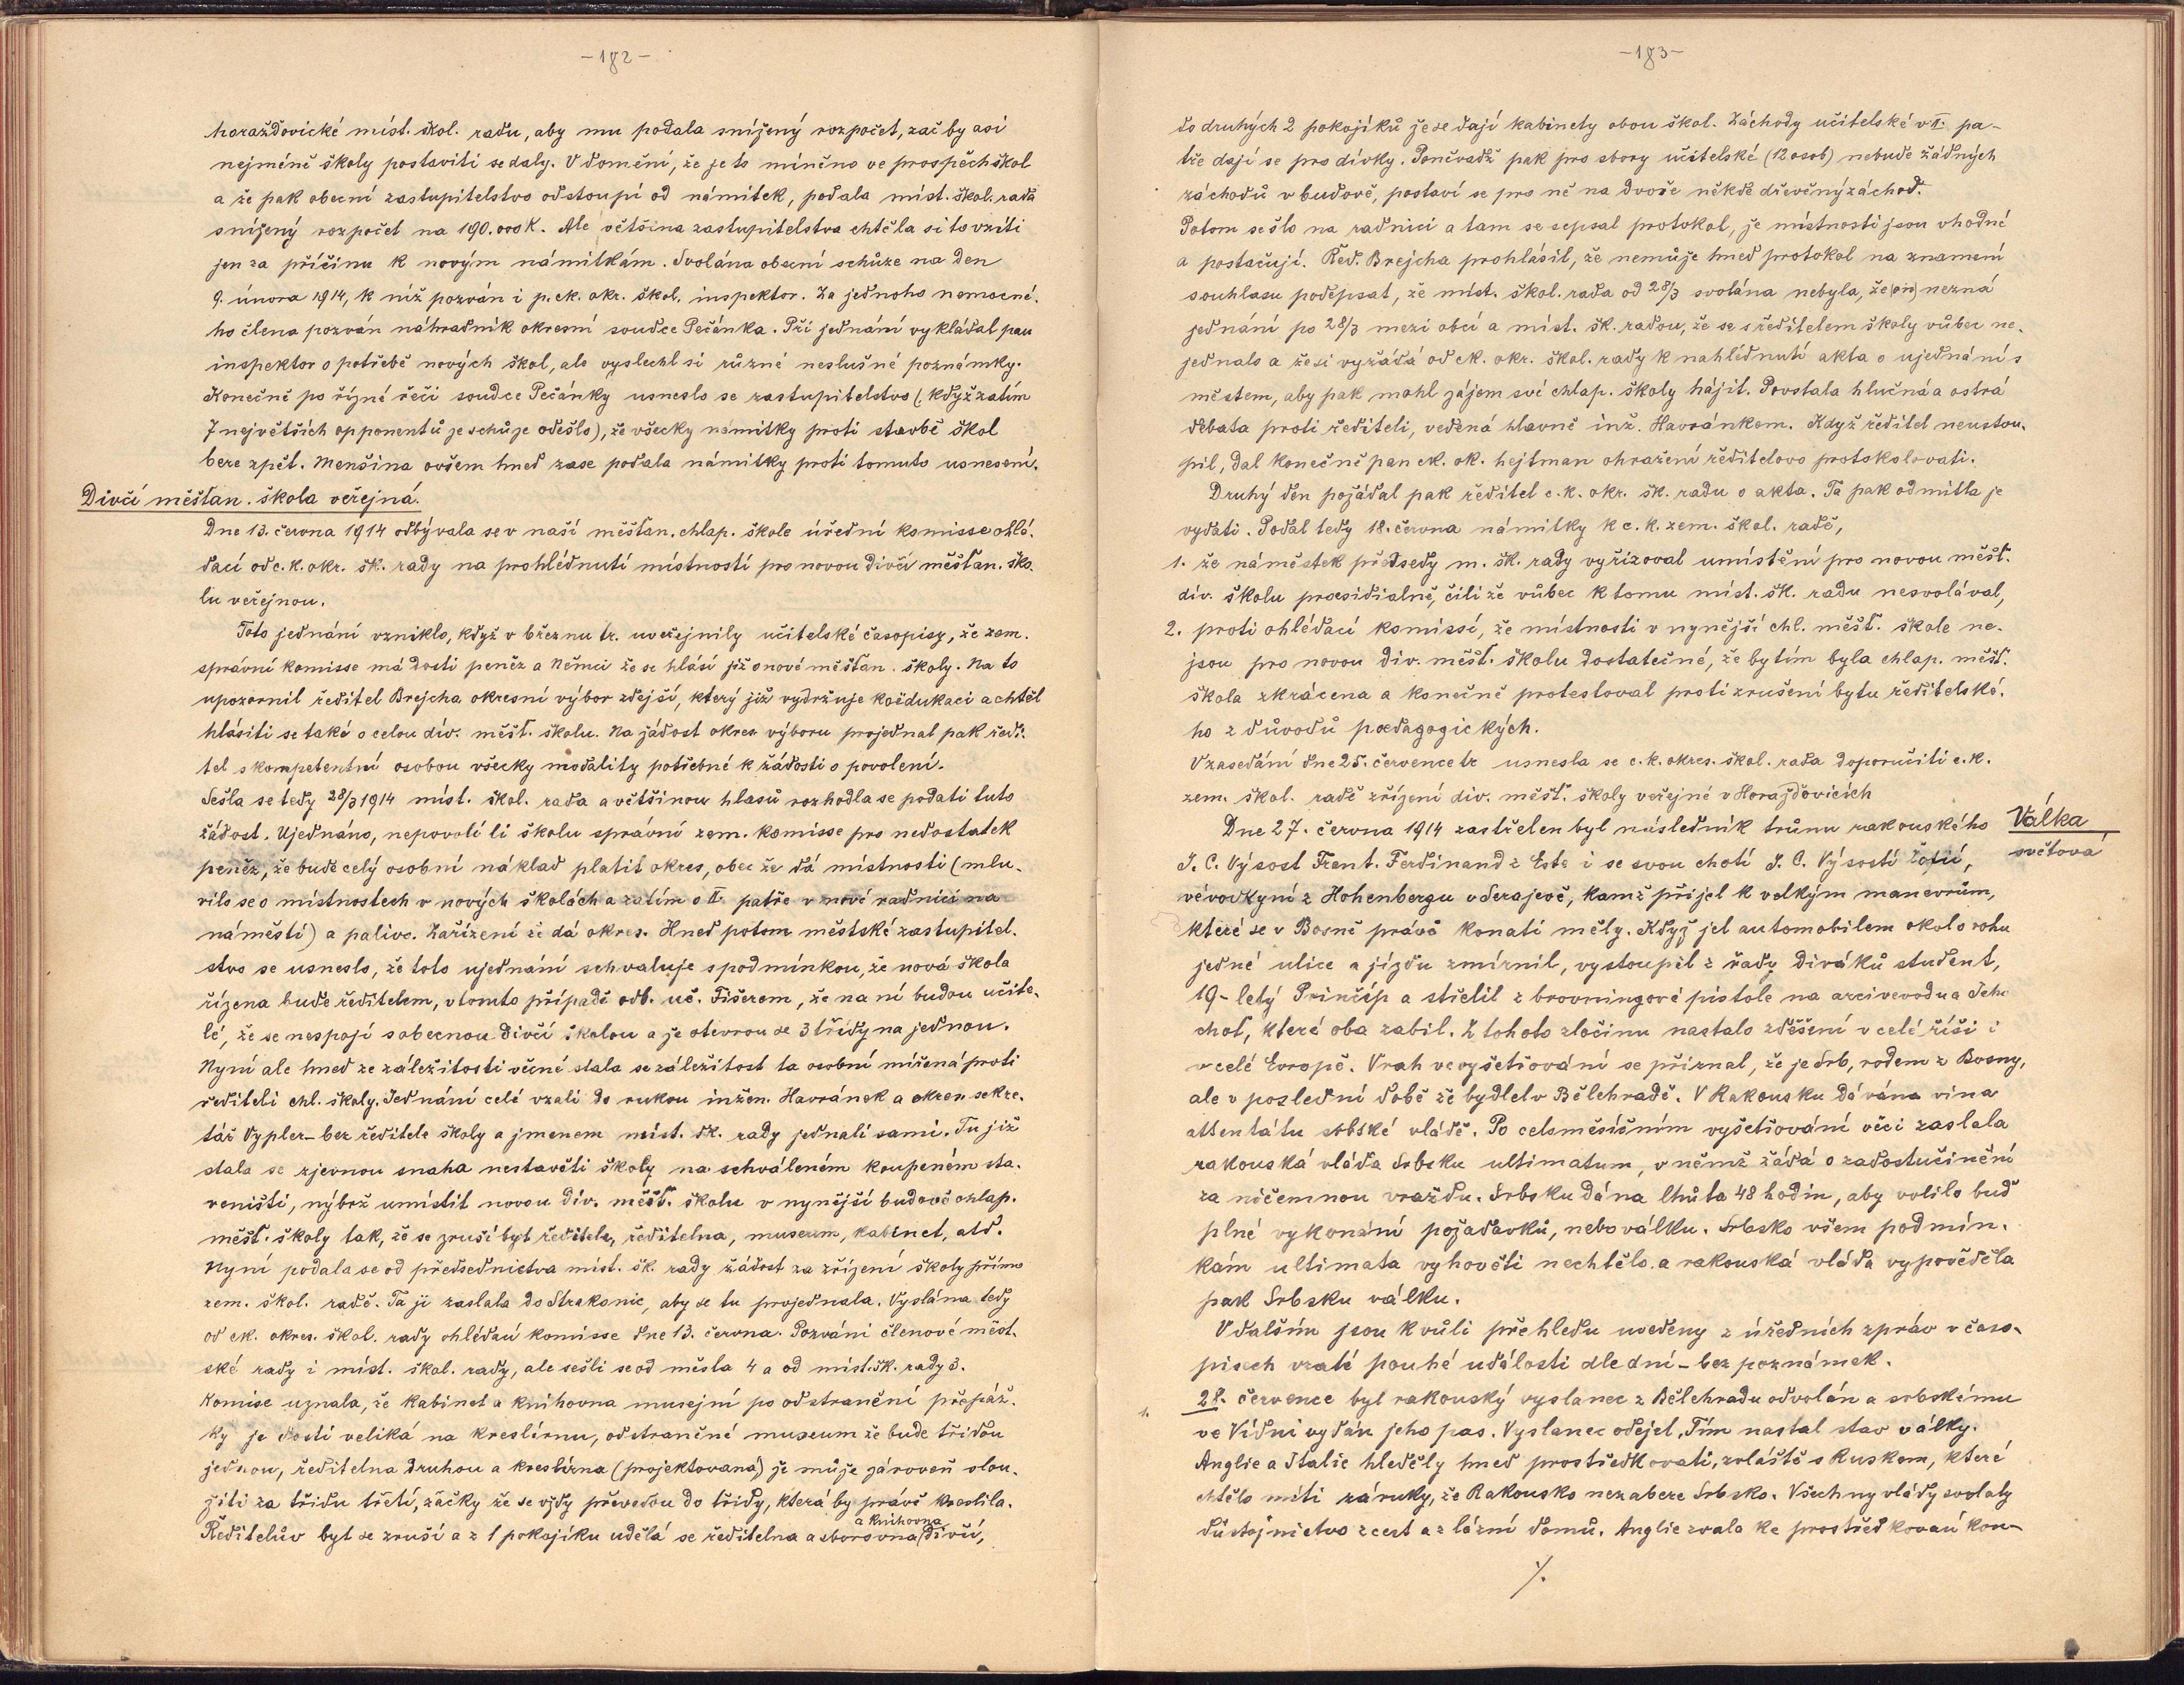 -182-
horažďovické míst. škol. radu, aby mu podala snížený rozpočet, zač by asi
nejméně školy postaviti se daly. V domění, že je to míněno ve prospěch škol
a že pak obecní zastupitelstvo odstoupí od námitek, podala míst. škol. rada
snížený rozpočet na 190.000 K. Ale většina zastupitelstva chtěla si to vzíti
jen za příčinu k novým námitkám. Svolána obecní schůze na den
9. února 1914, k níž pozván i p. ck. okr. škol. inspektor. Za jednoho nemocné-
ho člena pozván náhradník okresní soudce Pečánka. Při jednání vykládal pan
inspektor o potřebě nových škol, ale vyslechl si různé neslušné poznámky.
Konečně po řízné řeči soudce Pečánky usneslo se zastupitelstvo (když zatím
7 největších opponentů ze schůze odešlo), že všecky námitky proti stavbě škol
bere zpět. Menšina ovšem hned zase podala námitky proti tomuto usnesení.
Dívčí měšťan. škola veřejná.
Dne 13. června 1914 odbývala se v naší měšťan. chlap. škole úřední komisse ohlé-
dací od c. k. okr. šk. rady na prohlédnutí místností pro novou dívčí měšťan. ško-
lu veřejnou.
Toto jednání vzniklo, když v březnu tr. uveřejnily učitelské časopisy, že zem.
správní komisse má dosti peněz a Němci že se hlásí již o nové měšťan. školy. Na to
upozornil ředitel Brejcha okresní výbor zdejší, který již vydržuje koëdukaci a chtěl
hlásiti se také o celou dív. měšť. školu. Na žádost okres. výboru projednal pak ředi-
tel s kompetentní osobou všecky modality potřebné k žádosti o povolení.
Sešla se tedy 28/3 1914 míst. škol. rada a většinou hlasů rozhodla se podati tuto
žádost. Ujednáno, nepovolí li školu správní zem. komisse pro nedostatek
peněz, že bude celý osobní náklad platit okres, obec že dá místnosti (mlu-
vilo se o místnostech v nových školách a zatím o II. patře v nové radnici na
náměstí) a palivo. Zařízení že dá okres. Hned potom městské zastupitel-
stvo se usneslo, že toto ujednání schvaluje s podmínkou, že nová škola
řízena bude ředitelem, v tomto případě odb. uč. Fišerem, že na ní budou učite-
lé, že se nespojí s obecnou dívčí školou a že otevrou se 3 třídy na jednou.
Nyní ale hned ze záležitosti věcné stala se záležitost ta osobní mířená proti
řediteli chl. školy. Jednání celé vzali do rukou inžen. Havránek a okres. sekre-
tář Vypler – bez ředitele školy a jmenem míst. šk. rady jednali sami. Tu již
stala se zjevnou snaha nestavěti školy na schváleném koupeném sta-
veništi, nýbrž umístit novou dív. měšť. školu v nynější budově chlap.
měšť. školy tak, že se zruší byt ředitele, ředitelna, museum, kabinet, atd.
Nyní podala se od předsednictva míst. šk. rady žádost za zřízení školy přímo
zem. škol. radě. Ta ji zaslala do Strakonic, aby se tu projednala. Vyslána tedy
od ck. okres. škol. rady ohlédací komisse dne 13. června. Pozváni členové měst-
ské rady i míst. škol. rady, ale sešli se od města 4 a od míst. šk. rady 3.
Komise uznala, že kabinet a knihovna musejní po odstranění přepáž-
ky je dosti veliká na kreslírnu, odstraněné museum že bude třídou
jednou, ředitelna druhou a kreslírna (projektovaná) že může zároveň slou-
žiti za třídu třetí, žačky že se vždy převedou do třídy, která by právě kreslila.
Ředitelův byt se zruší a z 1 pokojíku udělá se ředitelna a sborovna a knihovna dívčí,
-183-
do druhých 2 pokojíků že se dají kabinety obou škol. Záchody učitelské v I. pa-
tře dají se pro dívky. Poněvadž pak pro sbory učitelské (12 osob) nebude žádných
záchodů v budově, postaví se pro ně na dvoře někde dřevěný záchod.
Potom se šlo na radnici a tam se sepsal protokol, že místnosti jsou vhodné
a postačují. Řed. Brejcha prohlásil, že nemůže hned protokol na znamení
souhlasu podepsat, že míst. škol. rada od 28/3 svolána nebyla, že (on) nezná
jednání po 28/3 mezi obcí a míst. šk. radou, že se s ředitelem školy vůbec ne-
jednalo a že si vyžádá od ck. okr. škol. rady k nahlédnutí akta o ujednání s
městem, aby pak mohl zájem své chlap. školy hájit. Povstala hlučná a ostrá
debata proti řediteli, vedená hlavně inž. Havránkem. Když ředitel neustou-
pil, dal konečně pan ck. ok. hejtman ohražení ředitelovo protokolovati.
Druhý den požádal pak ředitel c. k. okr. šk. radu o akta. Ta pak odmítla je
vydati. Podal tedy 18. června námitky k c. k. zem. škol. radě,
1. že náměstek předsedy m. šk. rady vyřizoval umístění pro novou měšť.
dív. školu præsidialně, čili že vůbec k tomu míst. šk. radu nesvolával,
2. proti ohlédací komissi, že místnosti v nynější chl. měšť. škole ne-
jsou pro novou dív. měšť. školu dostatečné, že by tím byla chlap. měšť.
škola zkrácena a konečně protestoval proti zrušení bytu ředitelské-
ho z důvodů pædagogických.
V zasedání dne 25. července tr usnesla se c. k. okres. škol. rada doporučiti c. k.
zem. škol. radě zřízení dív. měšť. školy veřejné v Horažďovicích
Válka
světová
Dne 27. června 1914 zastřelen byl následník trůnu rakouského
J. C. Výsost Frant. Ferdinand z Este i se svou chotí J. C. Výsostí Žofií,
vévodkyní z Hohenbergu v Serajevě, kamž přijel k velkým manevrům,
které se v Bosně právě konati měly. Když jel automobilem okolo rohu
jedné ulice a jízdu zmírnil, vystoupil z řady diváků student,
19-letý Prinčíp a střelil z brovningové pistole na arcivevodu a Jeho
choť, které oba zabil. Z tohoto zločinu nastalo zděšení v celé říši i
v celé Evropě. Vrah ve vyšetřování se přiznal, že je Srb, rodem z Bosny,
ale v poslední době že bydlel v Bělehradě. V Rakousku dávána vina
attentátu srbské vládě. Po celoměsíčním vyšetřování věci zaslala
rakouská vláda Srbsku ultimatum, v němž žádá o zadostučinění
za ničemnou vraždu. Srbsku dána lhůta 48 hodin, aby volilo buď
plné vykonání požadavků, nebo válku. Srbsko všem podmín-
kám ultimata vyhověti nechtělo a rakouská vláda vypověděla
pak Srbsku válku.
V dalším jsou k vůli přehledu uvedeny z úředních zpráv v časo-
pisech vzaté pouhé události dle dní – bez poznámek.
28. července byl rakouský vyslanec z Bělehradu odvolán a srbskému
ve Vídni vydán jeho pas. Vyslanec odejel, Tím nastal stav války.
Anglie a Italie hleděly hned prostředkovati, zvláště s Ruskem, které
chtělo míti záruky, že Rakousko nezabere Srbsko. Všechny vlády svolaly
důstojnictvo z cest a z lázní domů. Anglie zvala ke prostředkování kon-
./.